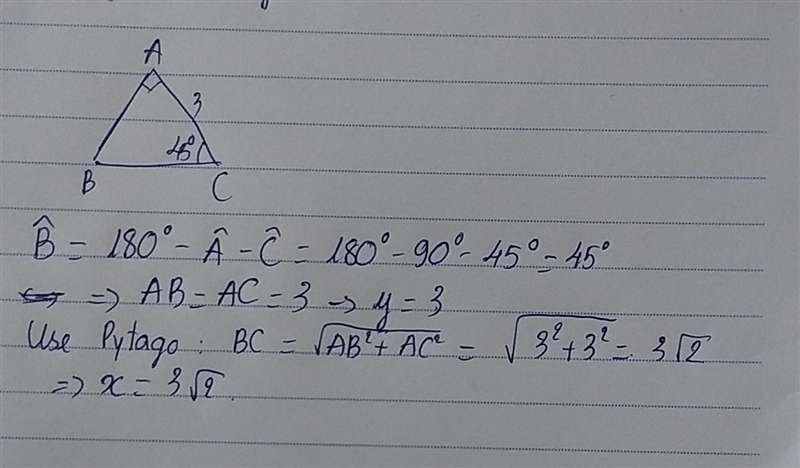 A
3
45°
B
C
B̂ = 180° - Â - Ĉ = 180° - 90° - 45° = 45°
=> AB = AC = 3 → y = 3
Use Pytago : BC = √(AB² + AC²) = √(3² + 3²) = 3√2
=> x = 3√2.